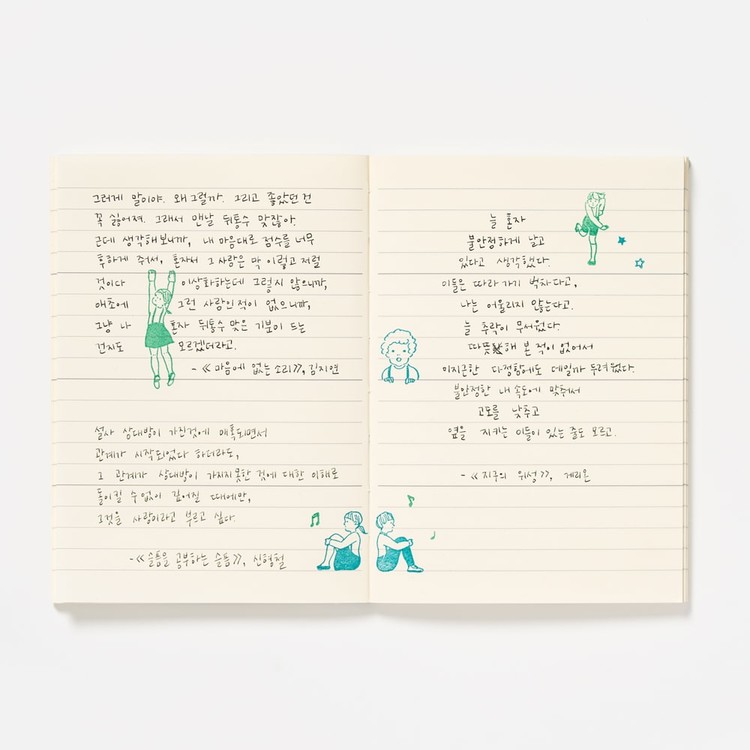 그러게 말이야. 왜 그럴까. 그리고 좋았던 건
꼭 싫어져. 그래서 맨날 뒤통수 맞잖아.
근데 생각해보니까, 내 마음대로 점수를 너무
후하게 줘서, 혼자서 그 사람은 막 이렇고 저럴
것이다 이상화하는데 그렇지 않으니까,
애초에 그런 사람인 적이 없으니까,
그냥 나 혼자 뒤통수 맞은 기분이 드는
건지도 모르겠더라고.
-《마음에 없는 소리》, 김지연
설사 상대방이 가진것에 매혹되면서
관계가 시작되었다 하더라도,
그 관계가 상대방이 가지지못한 것에 대한 이해로
돌이킬 수 없이 깊어질 때에만,
그것을 사랑이라고 부르고 싶다.
-《슬픔을 공부하는 슬픔》, 신형철
늘 혼자
불안정하게 날고
있다고 생각했다.
이들은 따라가기 벅차다고,
나는 어울리지 않는다고.
늘 추락이 무서웠다.
따뜻해 본 적이 없어서
미지근한 다정함에도 데일까 두려웠다.
불안정한 내 속도에 맞춰서
고도를 낮추고
옆을 지키는 이들이 있는 줄도 모르고.
-《지구의 위성》,